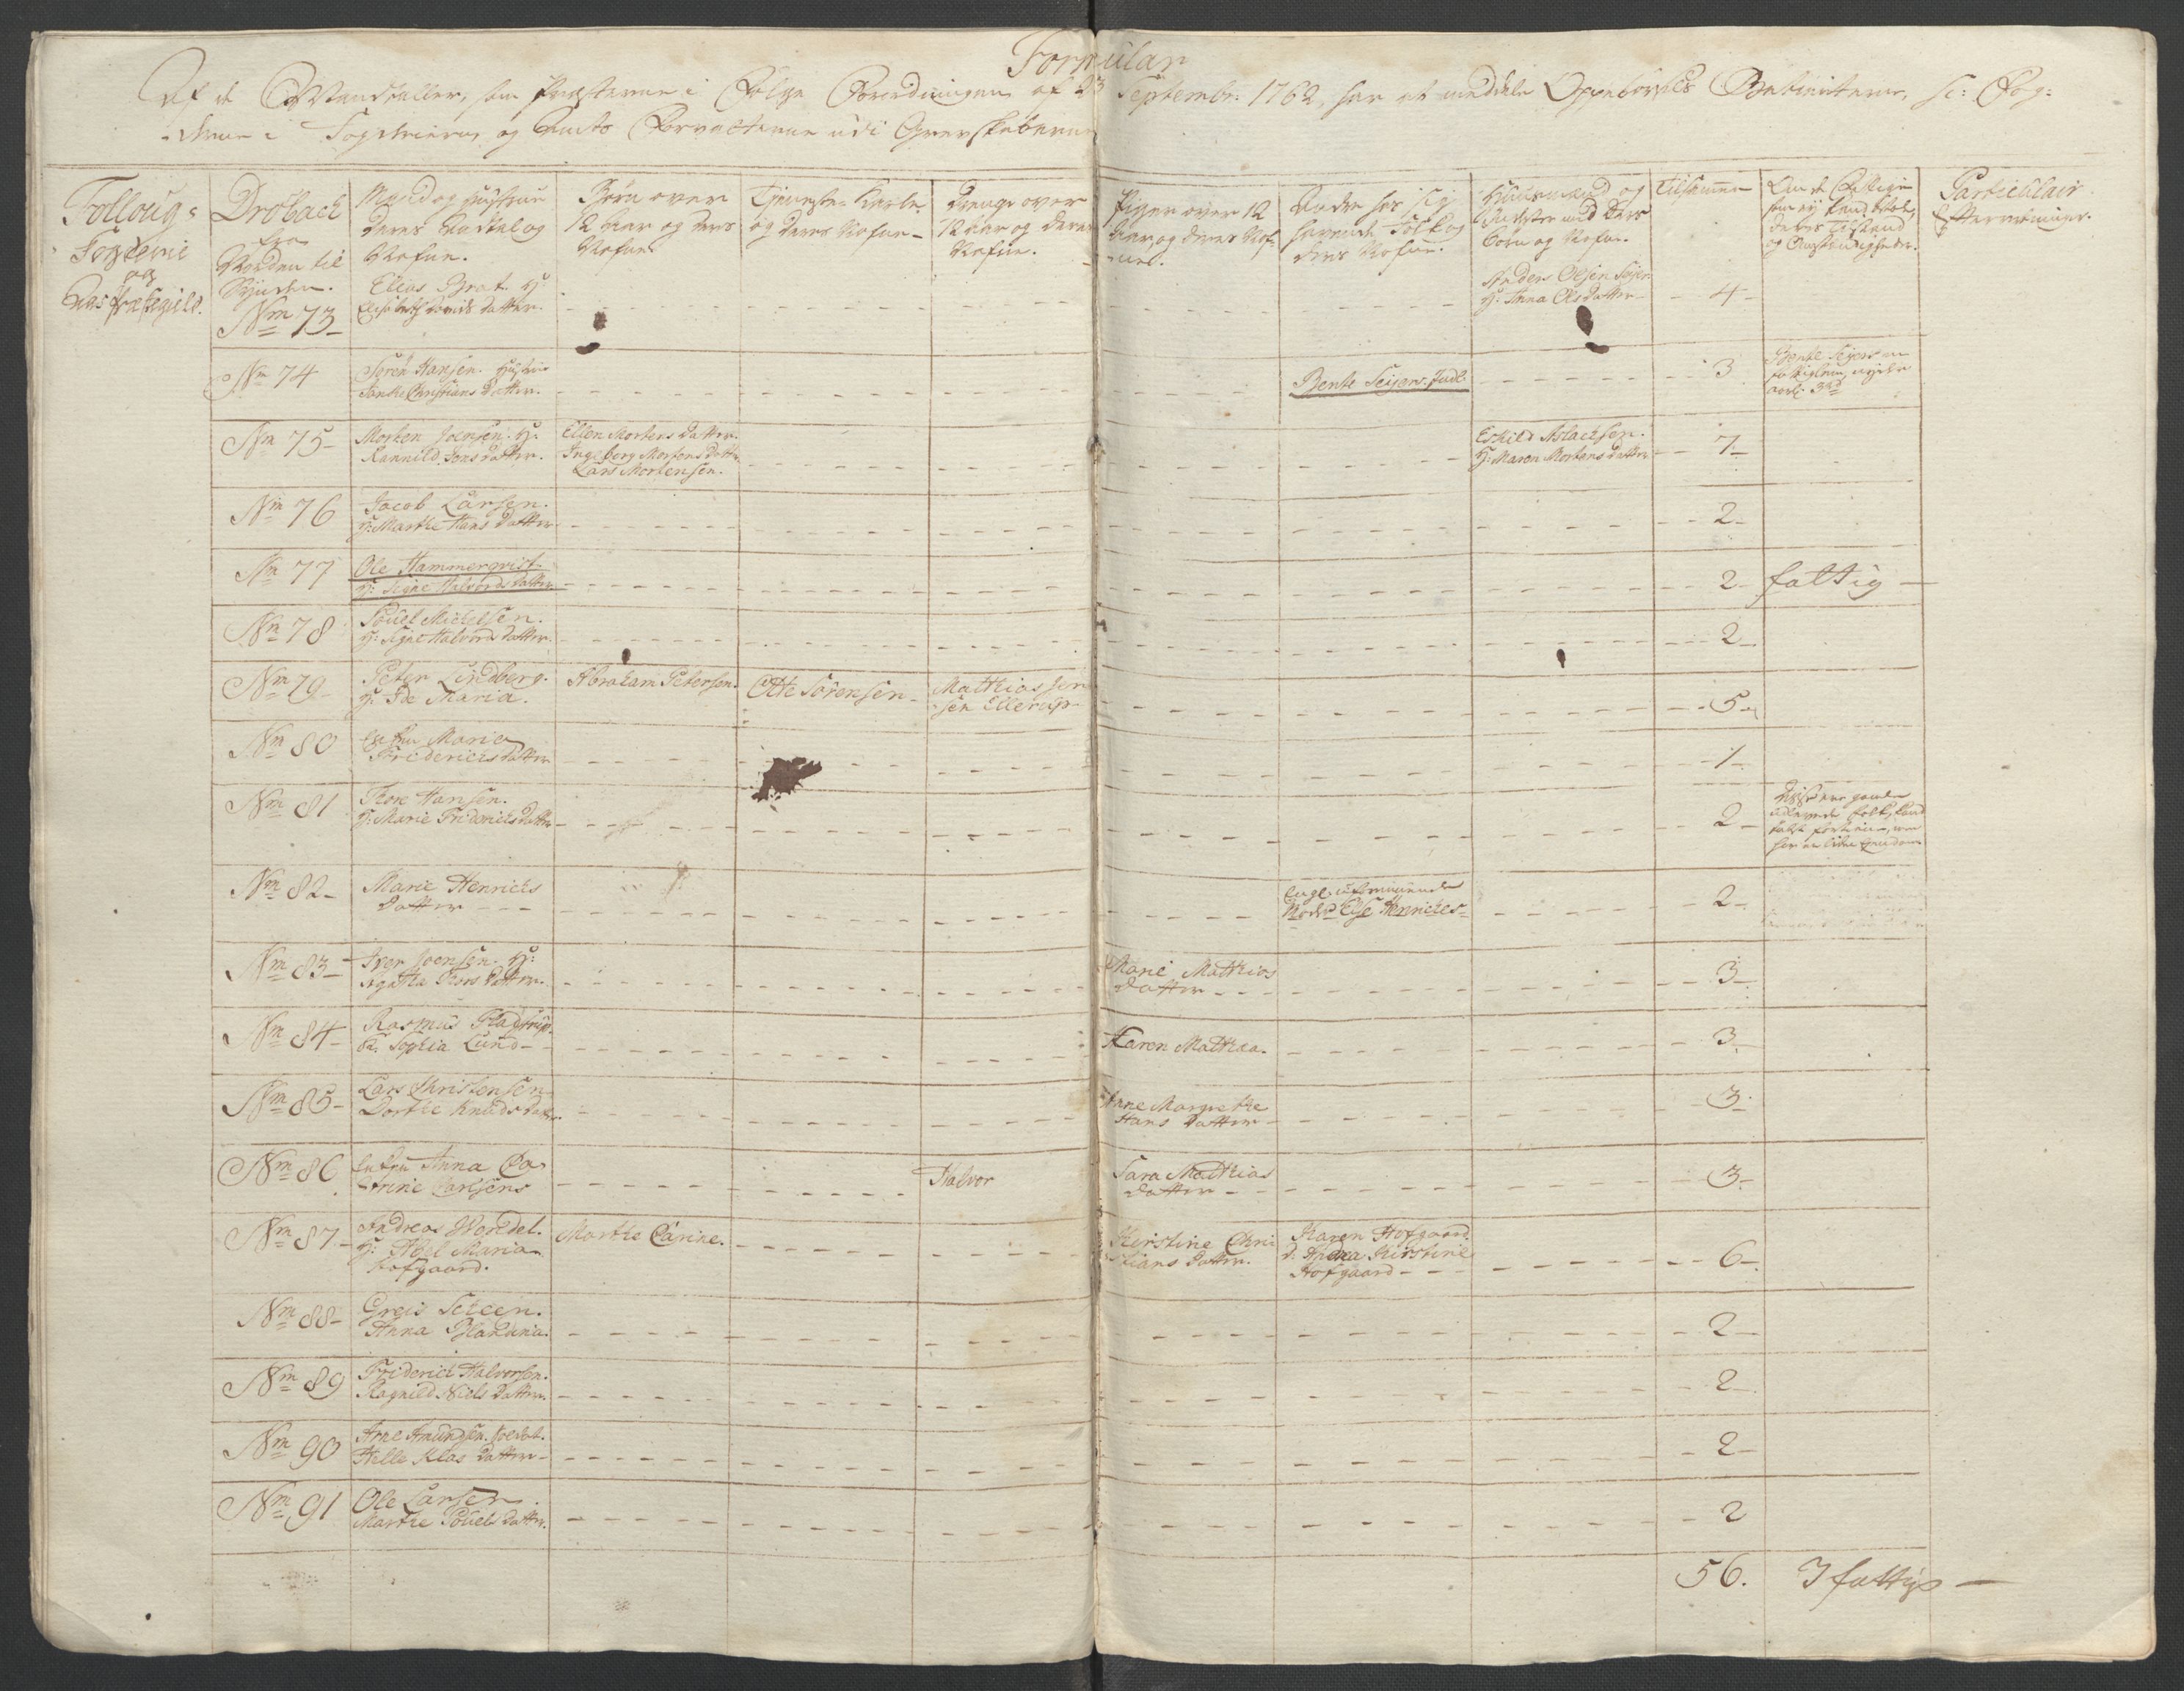 Formular
Af de Mandtaller, som Præsterne i Følge Forordningen af 23 Septembr: 1762, har at meddele Oppebørsels Betienterne, sc: Fog-
-derne i Fogderierne, og Amts Forvalterne udi Grevskaberne
Follough-
Fogderie
og
Aas Præstegield.
Drøbach
fra
Norden til
Synden.
Mand og Hustrue
deres Antal og
Nafne.
Børn over
12 Aar og deres
Nafne.
Tjeneste-Karle
og deres Nafne-
Drenge over
12 Aar og deres
Nafne.
Piger over 12
Aar og deres Naf-
-ne.
Andre hos sig
havende Folk og
deres Nafne.
Huusmænd og
Inderster med deres
Børn og Nafne.
Tilsammen
Om de Fattige
som ej kand betale,
deres Tilstand
og Omstændigheder.
Particulair
Efterretninger.
Nm 73-
Elias Brat. H:
Elisabeth Davids datter.
Anders Olsen Seier
H: Anna Olsdatter-
4-
Nm 74
Sören Hansen. Hustrue
Janike Christians Datter.
Bente Seiers. Inds:
3
Bente Seiers en
Nm 75-
Morten Joensen. H:
Rannild Jons datter.
Ellen Mortens datter.
Ingeborg Mortens datter
Lars Mortensen.
Eskild Aslachsen.
H: Maren Mortens datter
7-
Nm 76
Jacob Larsen.
H: Marthe Hans datter
2-
Nm 77
Ole Hammerqvist
H: Signe Halvords datter
2-
fattig-
Nm 78
Povel Michelsen.
H: Signe Halvors datter.
2-
Nm 79-
Peter Lindberg.
H: Ide Maria.
Abraham Petersen.
Otte Sörensen-
Matthias Jen
sen Ellerup-
5-
Nm 80
Enken Maria
Friderichs datter
1-
Nm 81
Thore Hansen.
H: Marie Friderichs datter
2-
Disse ere gamle
Nm 82-
Marie Henrichs
datter---
Moder Else Henriches-
2-
Nm 83-
Iver Joensen. H:
Agatha Thors Datter.
Marie Mathias
datter--
3-
Nm 84-
Rasmus Fladstrup.
H: Sophia Lund--
Karen Mathea-
3-
Nm 85-
Lars Christensen-
Dorthe Knuds datter.
Anne Margrethe
Hans Datter-
3-
Nm 86
Enken Anna Ca-
-trine Carlsens
Halvor
Sara Mathias
datter--
3-
Nm 87-
Andreas Wendel.
H: Abel Maria
Hofgaard.
Marthe Carine.
Kirstine Chri
stians datter.
Karen Hofgaard.
d: Andrea Kirstine
Hofgaard---
6-
Nm 88-
Greis Steen.
Anna Blandina.
2-
Nm 89
Friderich Halvorsen.
Ragnild Niels datter.
2-
Nm 90
Arne Amundsen. Soldat.
Helle Klas datter-
2-
Nm 91
Ole Larsen.
Marthe Povels datter.
2
56.
3 fattige-